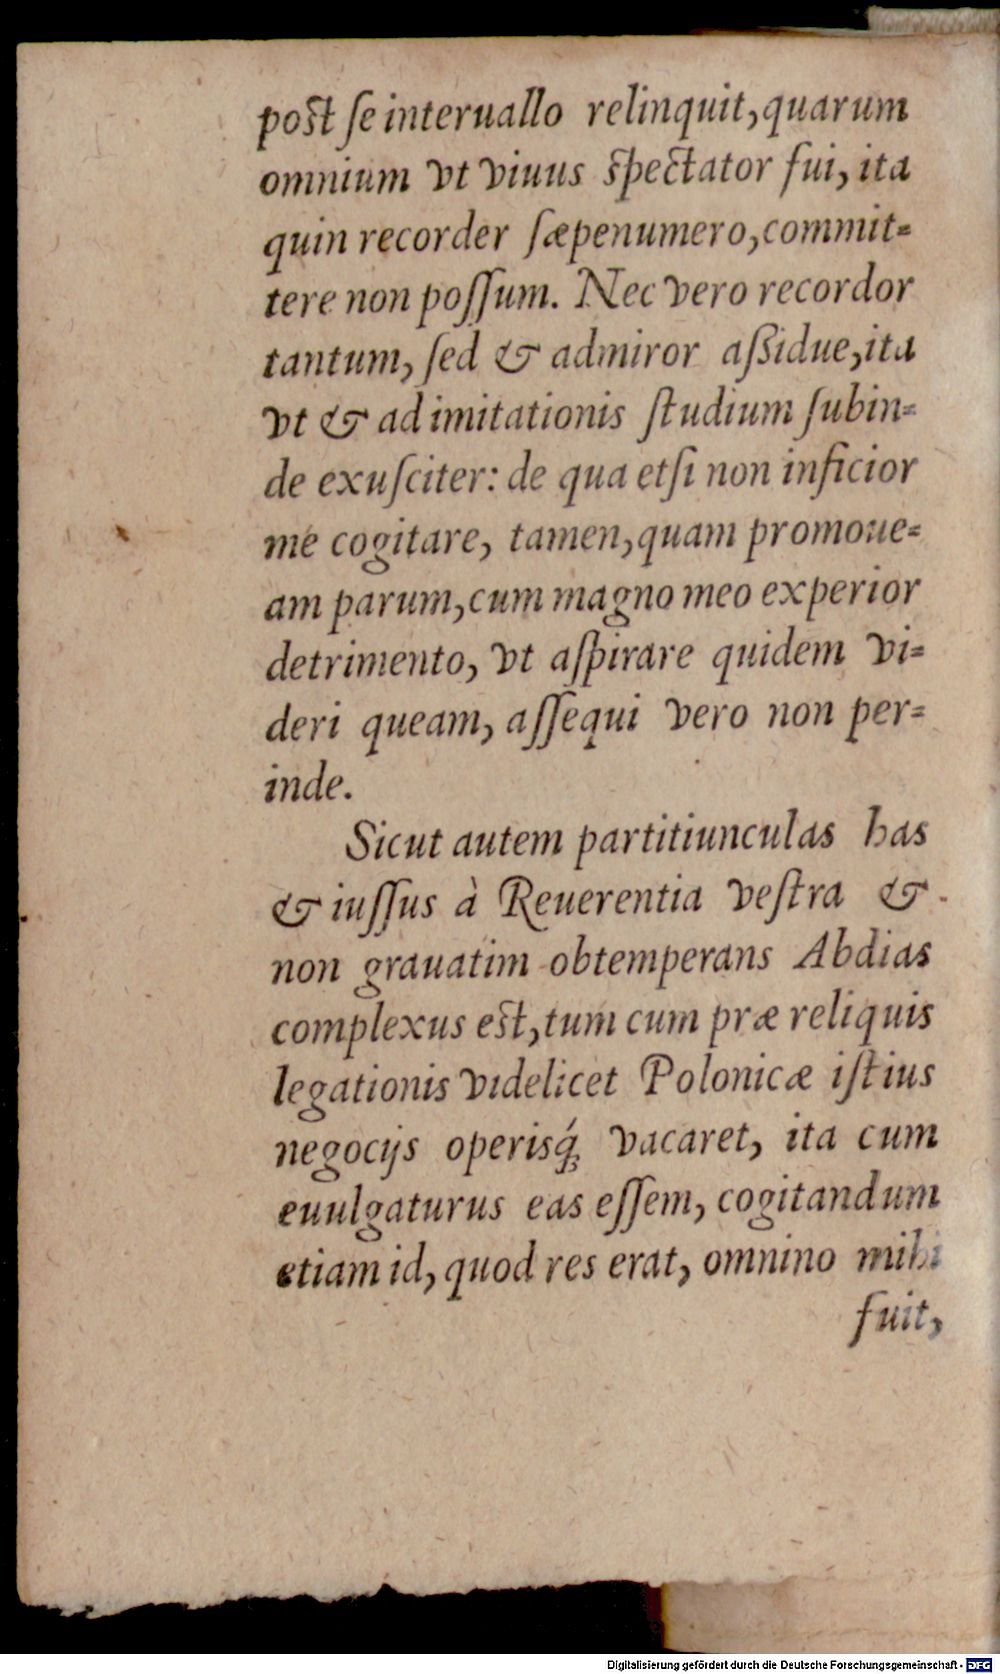 post ſe interuallo relinquit, quarum
omnium vt viuus spectator fui, ita
quin recorder ſæpenumero, commit-
tere non poſſum. Nec vero recordor
tantum, ſed & admiror aßidue, ita
vt & ad imitationis ſtudium ſubin-
de exuſciter: de qua etſi non inficior
me cogitare, tamen, quam promoue-
am parum, cum magno meo experior
detrimento, vt aſpirare quidem vi-
deri queam, aſſequi vero non per-
inde.
Sicut autem partitiunculas has
& iuſſus à Reuerentia veſtra &
non grauatim obtemperans Abdias
complexus est, tum cum præ reliquis
legationis videlicet Polonicæ iſtius
negocijs operisq́ꝫ vacaret, ita cum
euulgaturus eas eſſem, cogitandum
etiam id, quod res erat, omnino mihi
fuit,
Digitalisierung gefördert durch die Deutsche Forschungsgemeinschaft - DFG